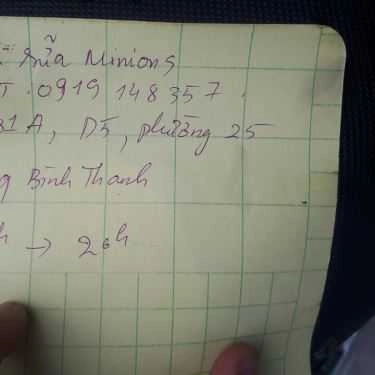 Sữa Minions
T. 0919 148 357.
31A, D5, phường 25
g Bình Thạnh
h → 20h